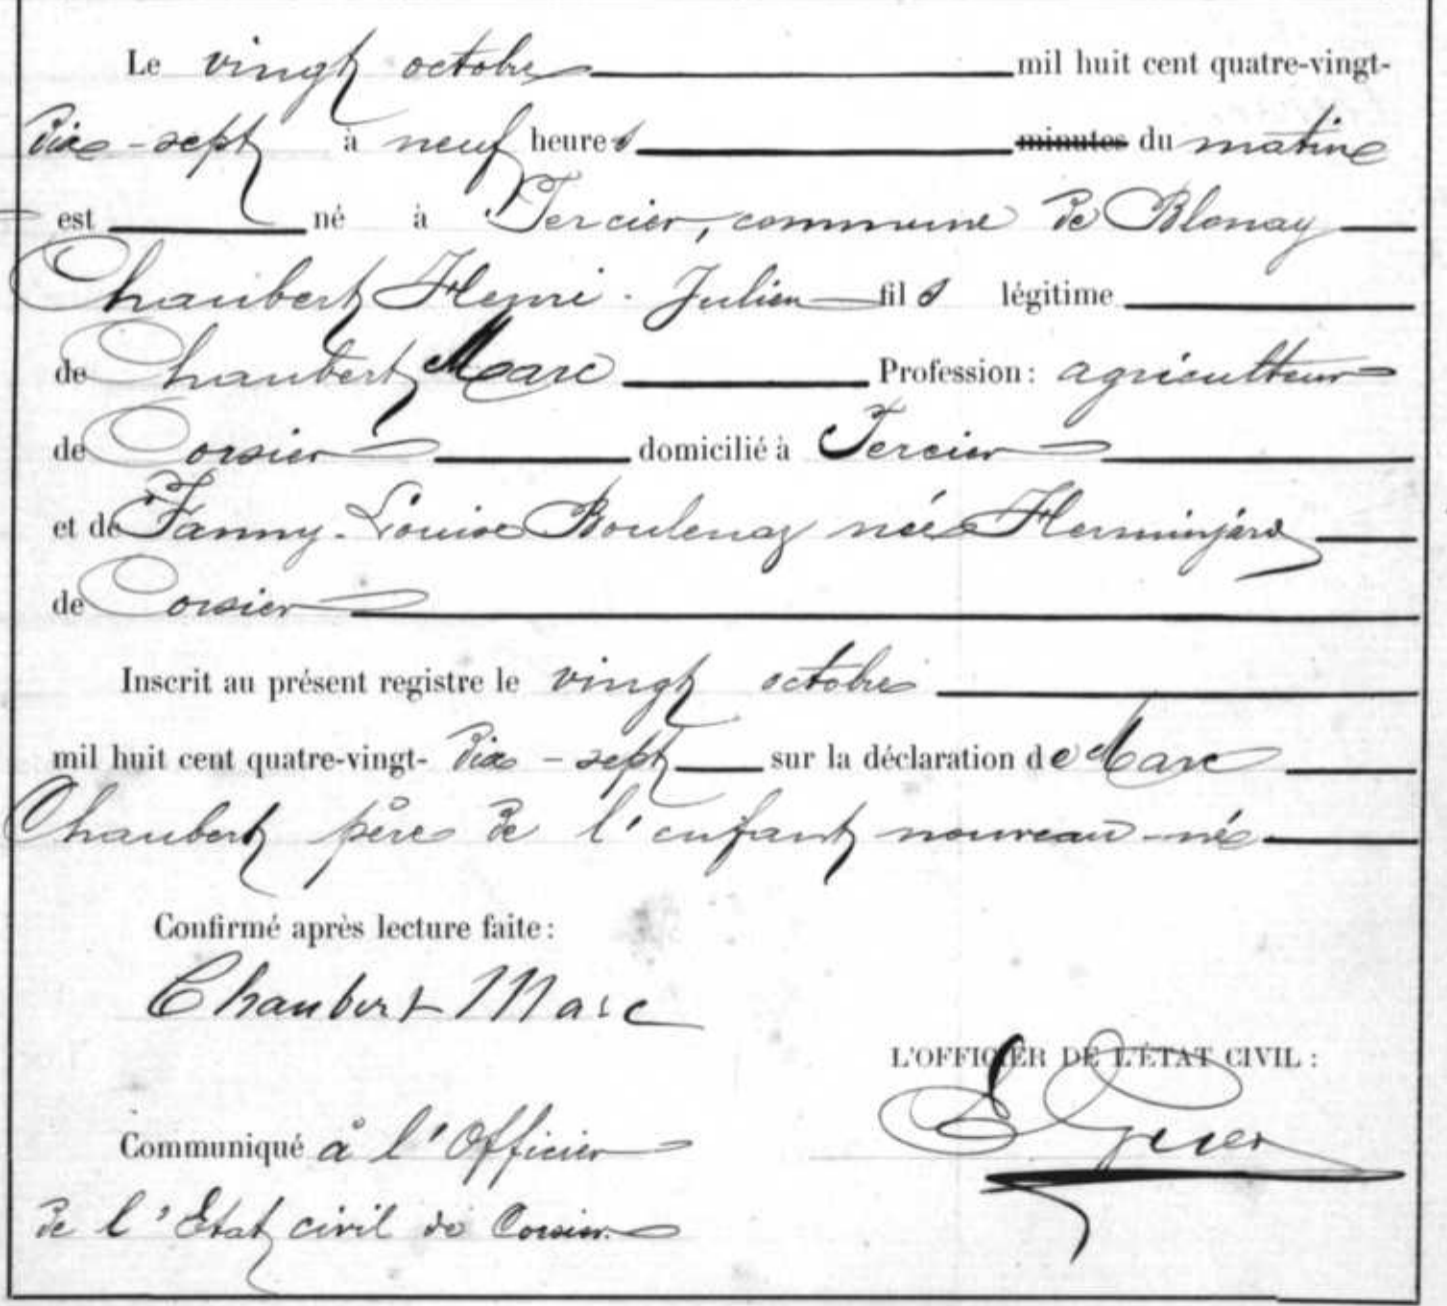 Le vingt octobre mil huit cent quatre-vingt-
dix-sept à neuf heures minutes du matin
est né à Tercier, commune de Blonay
Chaubert Henri-Julien fils légitime
de Chaubert Marc Profession: agriculteur
de Corsier domicilié à Tercier
et de Fanny-Louise Boulenaz née Herminjard
de Corsier
Inscrit au présent registre le vingt octobre
mil huit cent quatre-vingt-dix-sept sur la déclaration de Marc
Chaubert père de l'enfant nouveau-né
Confirmé après lecture faite:
Chaubert Marc
L'OFFICIER DE L'ÉTAT CIVIL:
Communiqué à l'Officier
de l'Etat civil de Corsier